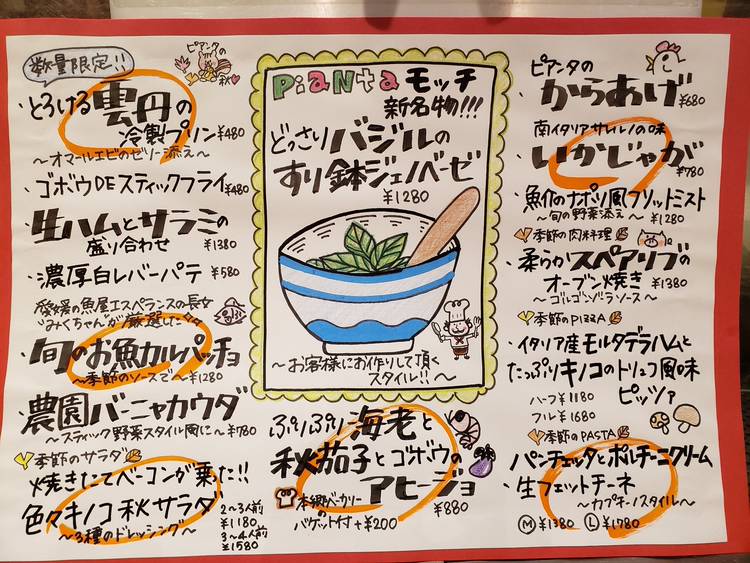 数量限定!!
ピアンタの
秋
・とろける雲丹の
冷製プリン ¥480
〜オマールエビのゼリー添え〜
・ゴボウDEスティックフライ ¥480
・生ハムとサラミの
盛り合わせ ¥1380
・濃厚白レバーパテ ¥580
愛媛の魚屋エスペランスの長女
"みくちゃん"が厳選した
・旬のお魚カルパッチョ
〜季節のソースで〜 ¥1280
・農園バーニャカウダ
〜スティック野菜スタイル風に〜 ¥780
季節のサラダ
焼きたてベーコンが乗った!!
色々キノコ秋サラダ
〜3種のドレッシング〜
2〜3人前
¥1180
3〜4人前
¥1580
PiaNta モッチ
新名物!!!
どっさりバジルの
すり鉢ジェノベーゼ
¥1280
〜お客様にお作りして頂く
スタイル!!〜
ぷりぷり海老と
秋茄子とゴボウの
アヒージョ
¥880
本郷ベーカリーの
バゲット付+¥200
ピアンタの
・からあげ ¥680
南イタリアサレルノの味
・いかじゃが ¥780
・魚介のナポリ風フリットミスト
〜旬の野菜添え〜 ¥1280
季節の肉料理
・柔らかスペアリブの
オーブン焼き ¥1380
〜ゴルゴンゾーラソース〜
季節のPIZZA
・イタリア産モルタデラハムと
たっぷりキノコのトリュフ風味
ピッツァ
ハーフ ¥1180
フル ¥1680
季節のPASTA
パンチェッタとポルチーニクリーム
・生フェットチーネ
〜カプチーノスタイル〜
M ¥1380 L ¥1780